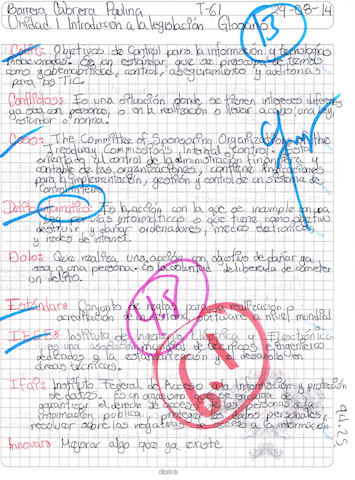 Barrera Cabrera Paulina T-61 29-08-14
Unidad 1 Introducción a la legislación Glosario
13
Cobit: Objetivos de Control para la información y tecnologías
relacionadas. Es un estándar que se
como gobernabilidad, control, aseguramiento y auditorias
para las TIC.
Conflictos: Es una situación donde se tienen intereses
ya sea con persona, o en la realización o llevar a cabo una
estandar o norma.
Coso: The Committee of Sponsoring
Treadway Commission's Internal Control
orientada al control de la administración financiera y
contable de las organizaciones, contiene
para la implementación, gestión y control de un sistema de
Control
Delito informático: Es la acción con la que se incumple en una
por vías informáticas o que tiene como objetivo
destruir, y dañar ordenadores, medios electrónicos
y redes de internet.
Dolo: Que realiza una acción con objetivo de dañar ya
sea a una persona. Es la voluntad deliberada de cometer
un delito.
Estándar: Conjunto de reglas para
a nivel mundial
1.8
IEEE: Instituto de
es una asociación mundial de
dedicados a la estandarización y el desarrollo en
áreas técnicas.
6.1
Ifai: Instituto Federal de Acceso a la información y protección
de datos. Es un organismo que se encarga de
garantizar el derecho de acceso de las personas a la
información pública, proteger los datos personales y
resolver sobre las negativas de acceso a la información
Innovar: Mejorar algo que ya existe